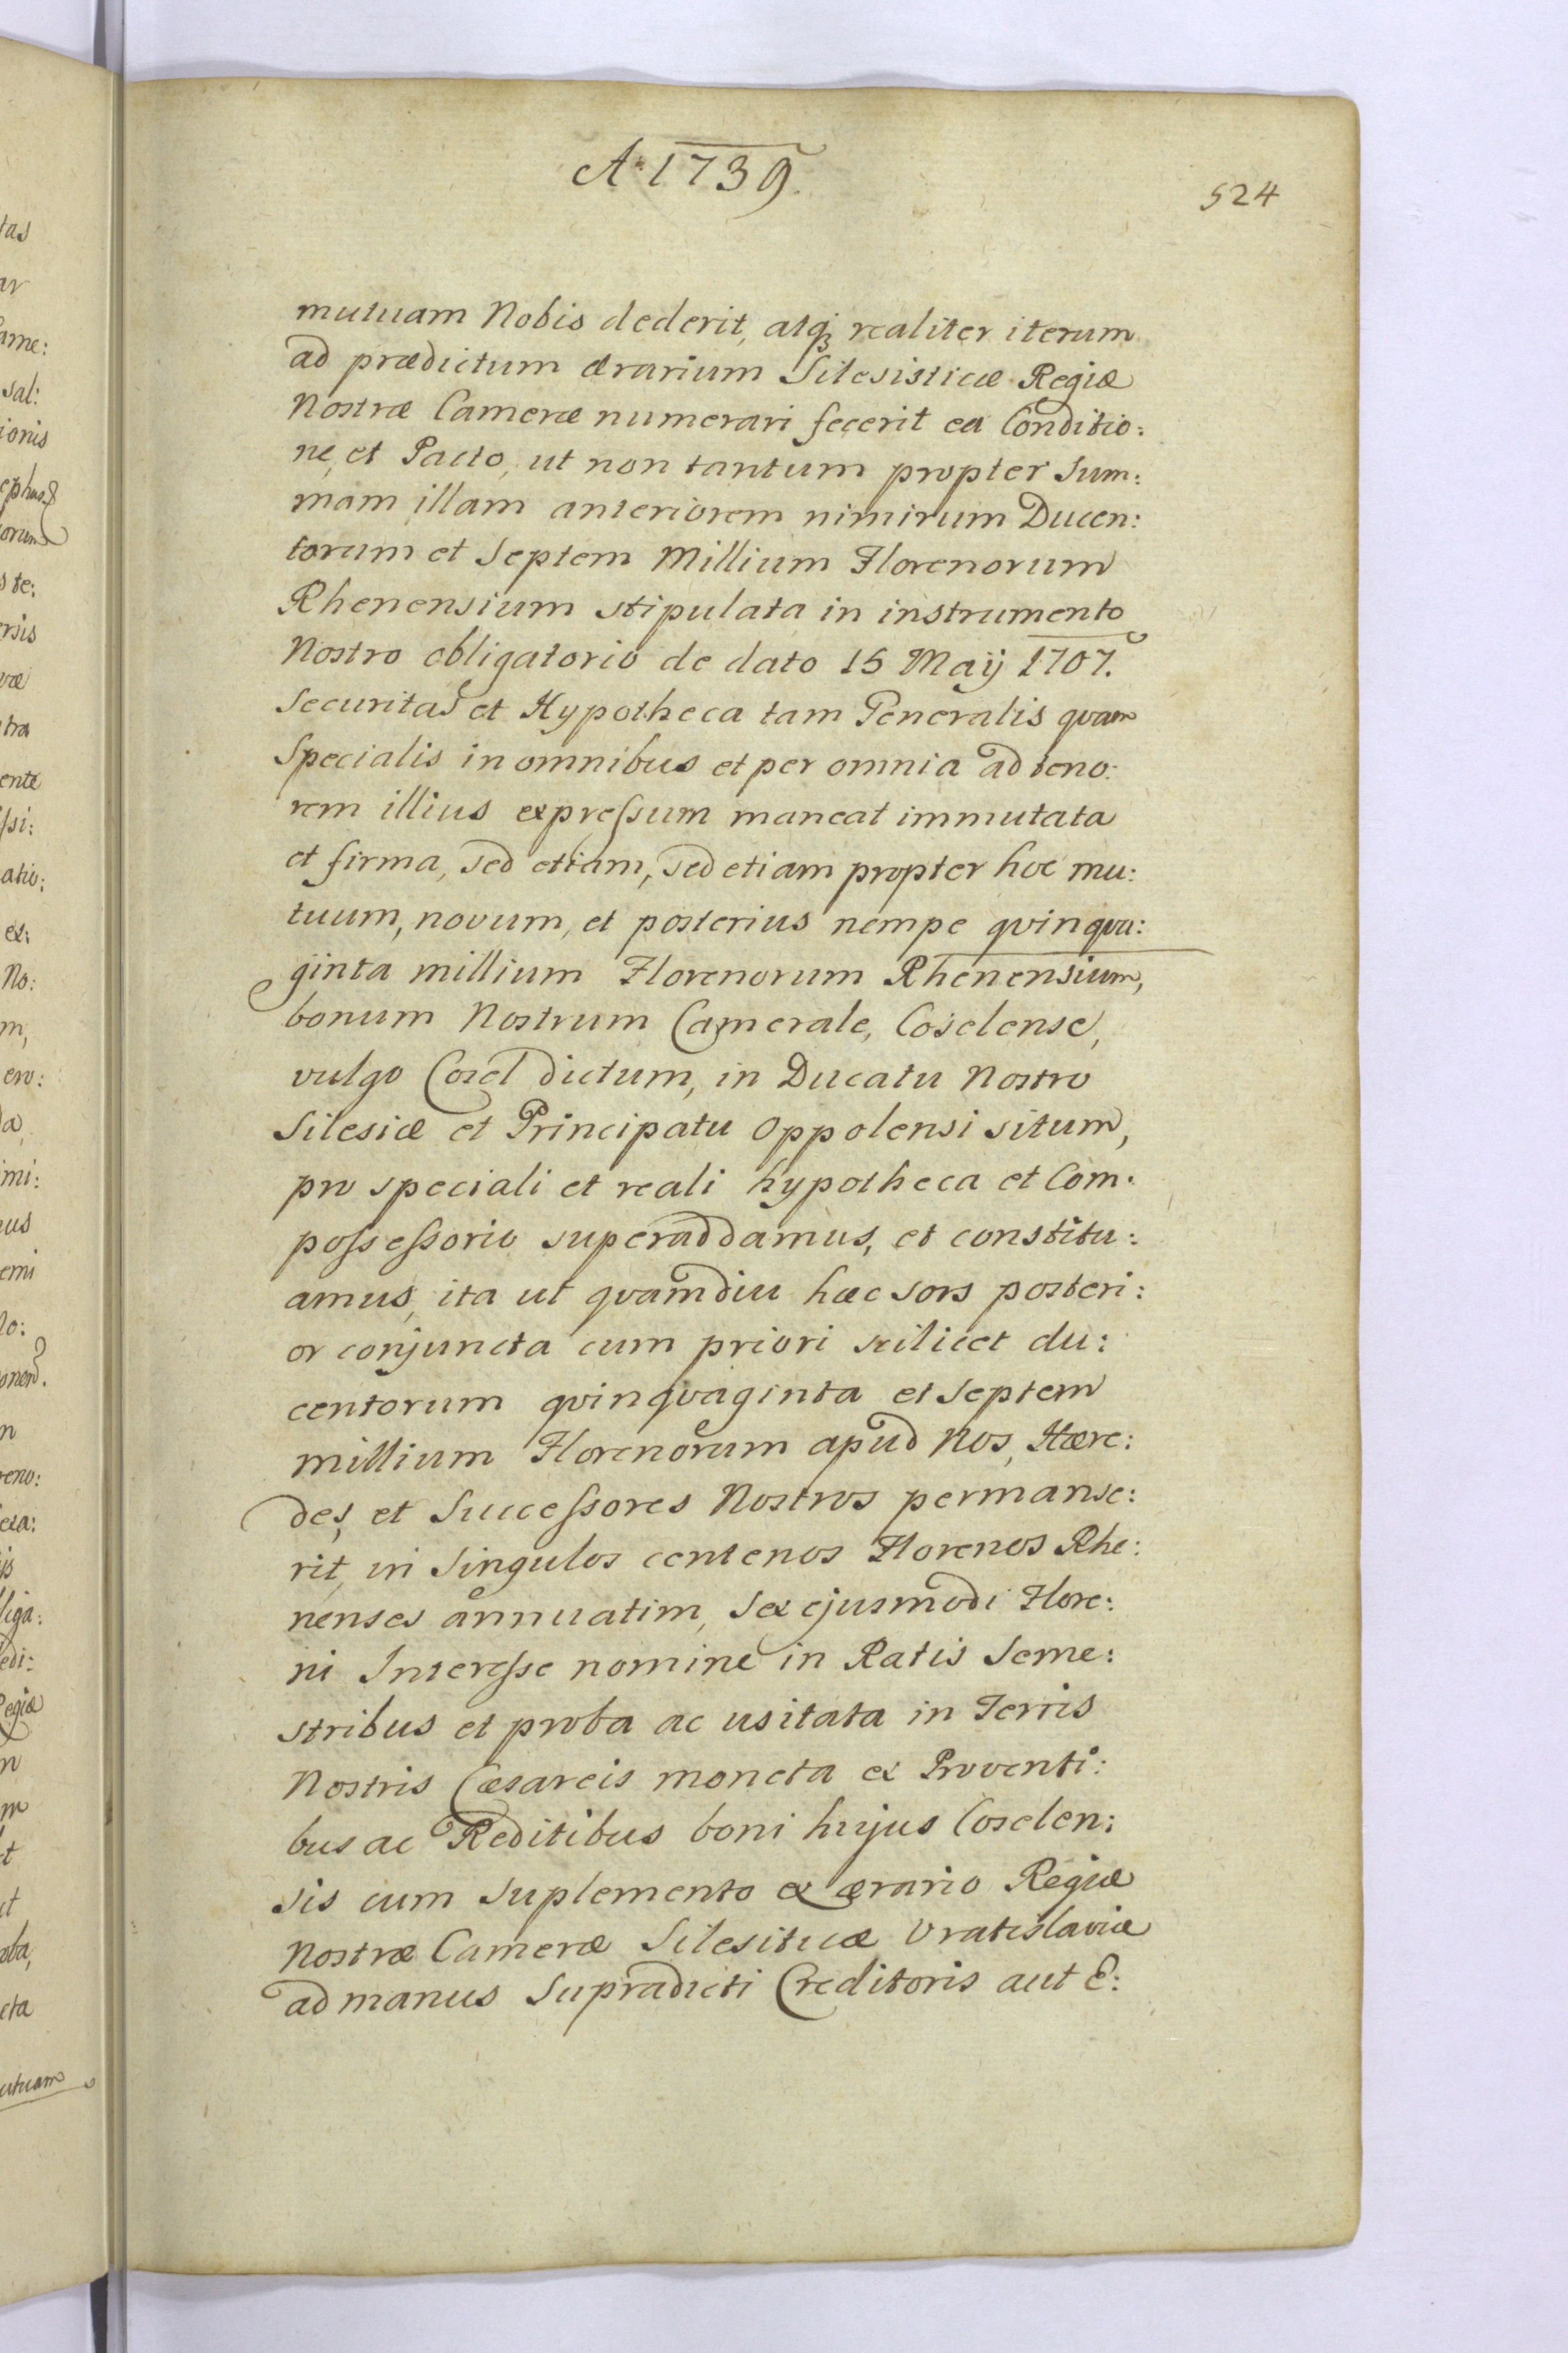 Aº 1739.
524
mutuam Nobis dederit, atq; realiter iterum
ad prædictum ærarium Silesisticæ Regiæ
Nostræ Cameræ numerari fecerit ea Conditio:
ne, et Pacto, ut non tantum propter Sum:
mam illam anteriorem nimirum Ducen:
torum et Septem Millium Florenorum
Rhenensium stipulata in instrumento
Nostro obligatorio de dato 15 Maÿ 1707.
Securitas et Hypotheca tam Generalis quam
Specialis in omnibus et per omnia ad teno:
rem illius expressum maneat immutata
et firma, sed etiam, sed etiam propter hoc mu:
tuum, novum, et posterius nempe qvinqva:
ginta millium Florenorum Rhenensium,
bonum Nostrum Camerale, Coselense,
vulgo Cosel dictum, in Ducatu Nostro
Silesiæ et Principatu Oppolensi situm,
pro speciali et reali hypotheca et Com:
possessorio superaddamus, et constitu:
amus, ita ut qvamdiu hæc sors posteri:
or conjuncta cum priori scilicet du:
centorum qvinqvaginta et Septem
millium Florenorum apud Nos, Hære:
des, et Successores Nostros permanse:
rit, in Singulos centenos Florenos Rhe:
nenses annuatim, Sex ejusmodi Flore:
ni Interesse nomine in Ratis Seme:
stribus et proba ac usitata in Terris
Nostris Cæsareis moneta ex Proventi:
bus ac Reditibus boni hujus Coselen:
sis cum Suplemento ex ærario Regiæ
Nostræ Cameræ Silesiticæ Vratislaviæ
ad manus Supradicti Creditoris aut E: